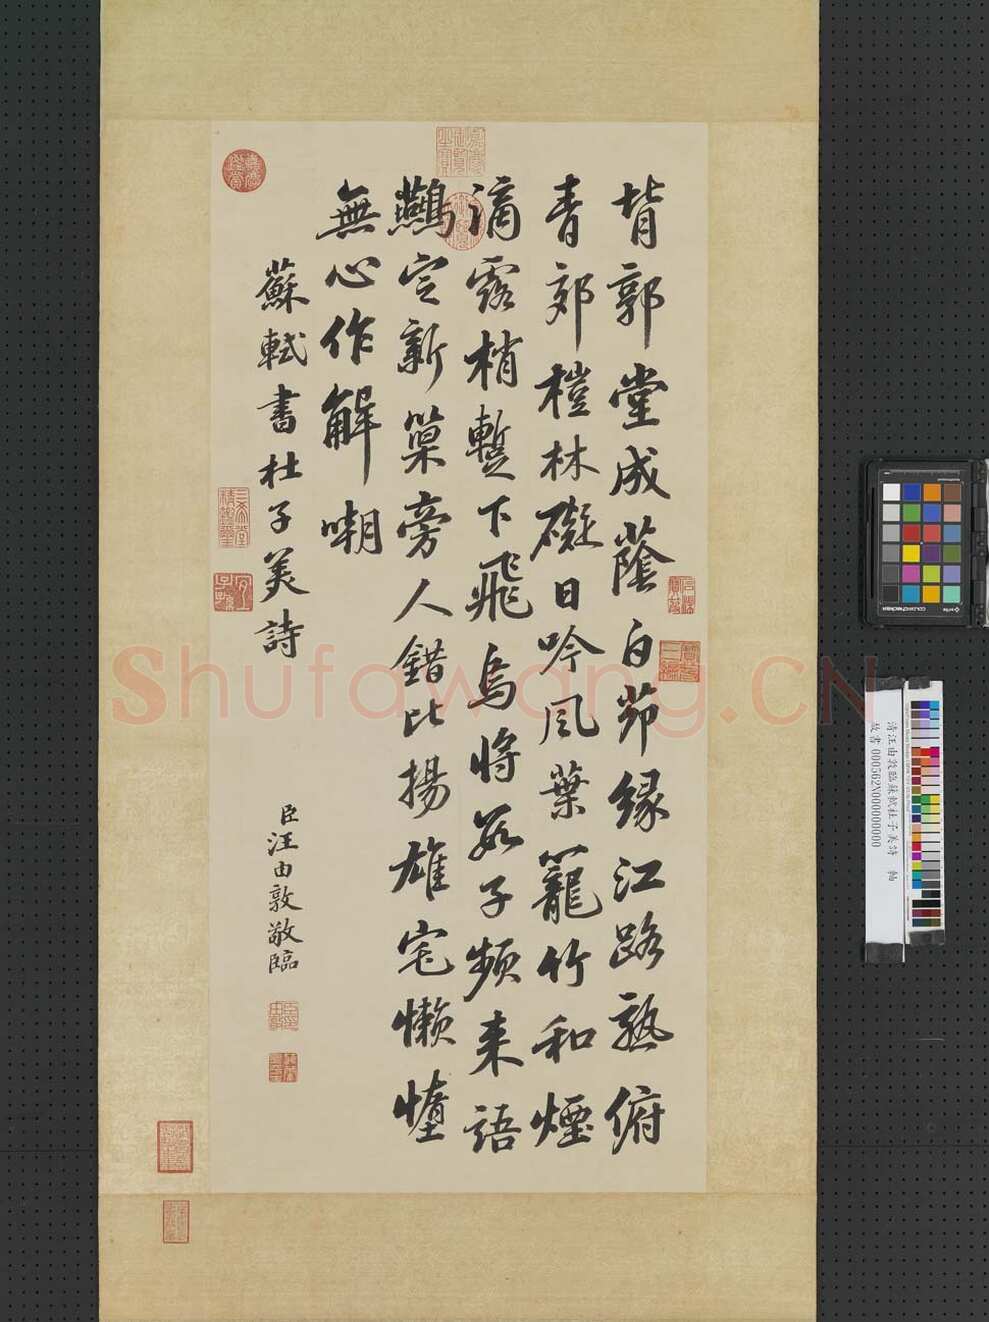 背郭堂成蔭白茆縁江路熟俯
青郊榿林礙日吟風葉籠竹和煙
滴露梢蹔下飛烏將數子頻来語
鷰定新巢旁人錯比揚雄宅懶惰
無心作解嘲
蘇軾書杜子美詩
臣汪由敦敬臨
Shufawang.CN
清汪由敦臨蘇軾杜子美詩 軸
故書 000562N000000000